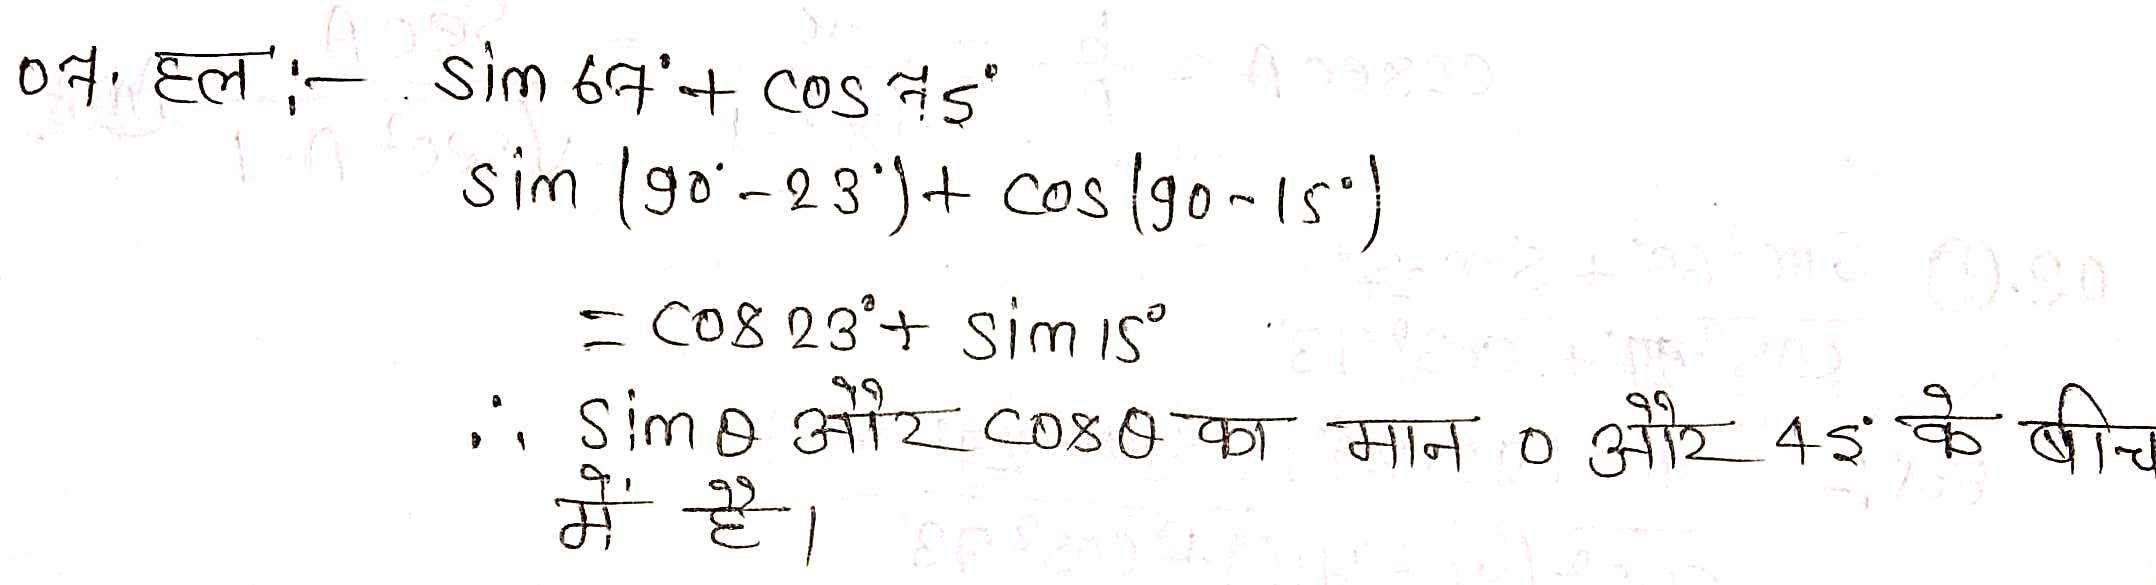 07. हल :- sin 67° + cos 75°
sin (90° - 23°) + cos (90 - 15°)
= cos 23° + sin 15°
∴ sin θ और cos θ का मान 0 और 45° के बीच
में है।